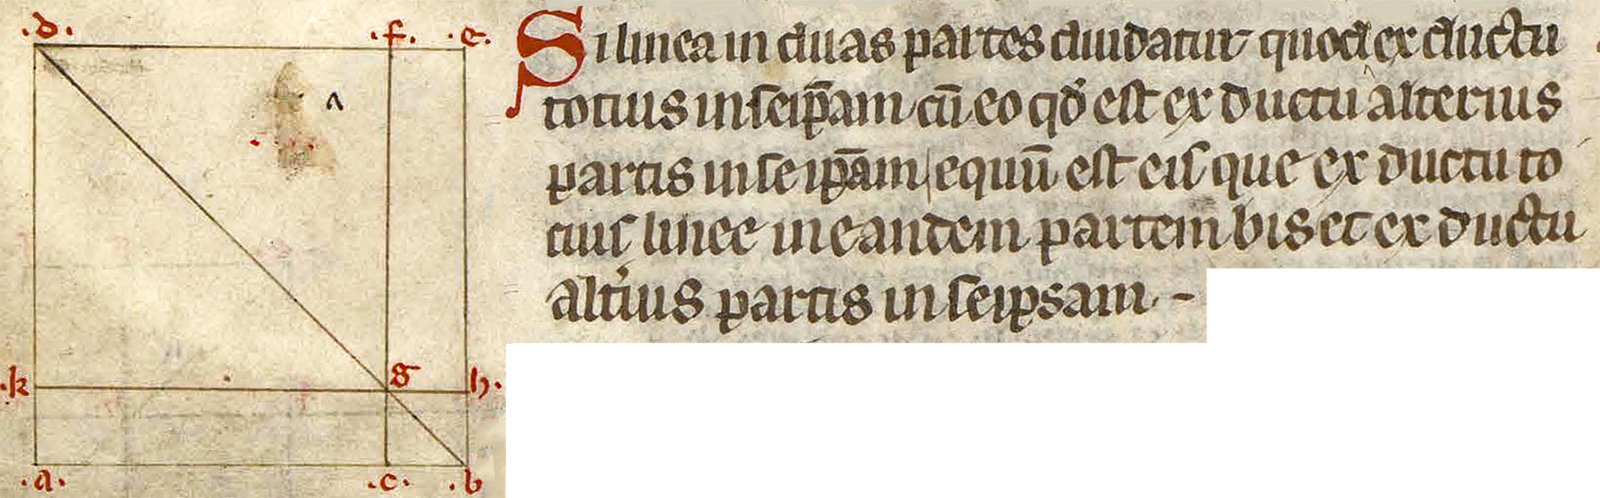 .d. .f. .e.
.k. g .h.
.a. .c. .b
Si linea in duas partes diuidatur quod ex ductu
totius in seip̄am cū eo qđ est ex ductu alterius
partis in seip̄am equū est eis que ex ductu to
tius linee in eandem partem bis et ex ductu
alt̓ius partis in seipsam. -